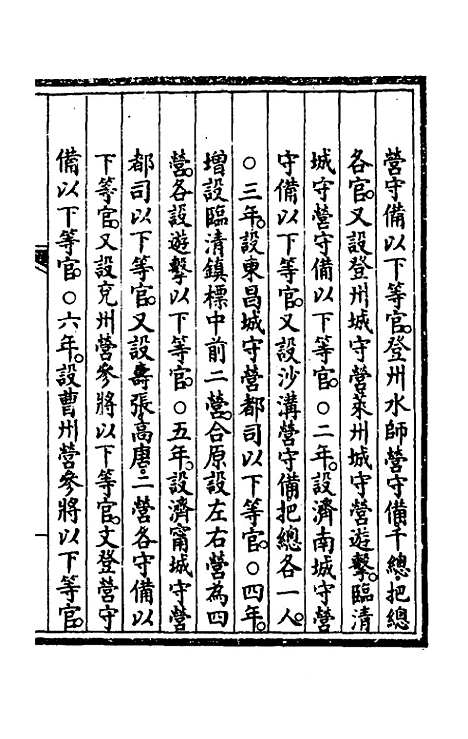 營守備以下等官。登州水師營守備千總。把總
各官。又設登州城守營萊州城守營遊擊。臨清
城守營守備以下等官。○二年。設濟南城守營
守備以下等官。又設沙溝營守備把總各一人。
○三年。設東昌城守營都司以下等官。○四年。
增設臨清鎮標中前二營。合原設左右營為四
營。各設遊擊以下等官。○五年。設濟甯城守營
都司以下等官。又設壽張。高唐。二營各守備以
下等官。又設兗州營參將以下等官。文登營守
備以下等官。○六年。設曹州營參將以下等官。